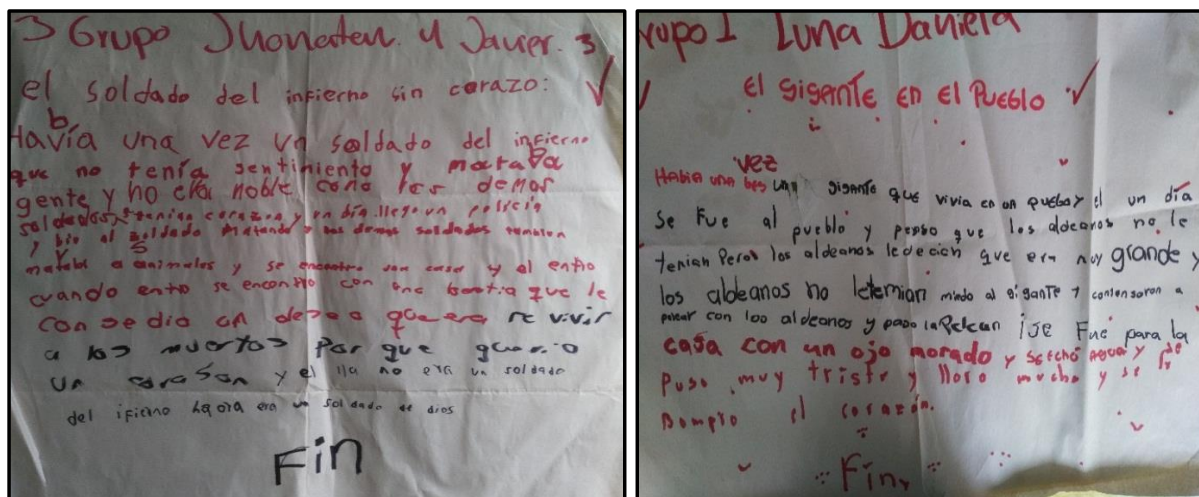 3 Grupo Jhonaten y Javier. 3
el soldado del infierno sin corazo:
b
Havía una vez un soldado del infierno
que no tenía sentimiento y mataba
gente y no era noble como los demas
soldados, tenian corazon y un día llego un policia
y bio al soldado matando a sus demas soldados tambien
mataba a animales y se encontro una casa y el entro
cuando entro se encontro con una que le
consedio un deseo que era revivir
a los muertos por que quario
un corason y el lla no era un soldado
del ifierno haora era un soldado de dios
Fin
rupo 1 Luna Daniela
El gigante en el Pueblo
vez
Habia una bes un gigante que vivia en un puebo y el un día
se fue al pueblo y penso que los aldeanos no le
tenian Pero los aldeanos le decian que era muy grande y
los aldeanos no letemian miedo al gigante y comensaron a
pelear con loo aldeanos y paso la Pelean ise Fue para la
casa con un ojo morado y seechó agua y se
Puso muy triste y lloro mucho y se le
Rompio el corazón.
Fin